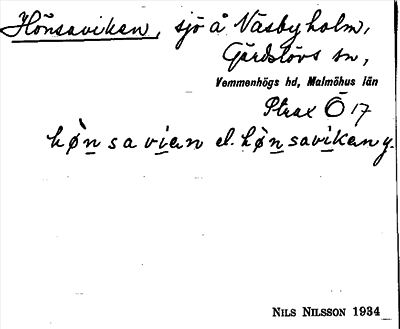 Hönsaviken, sjö å Näsbyholm,
Gärdslövs sn,
Vemmenhögs hd, Malmöhus län
Strax Ö 17
hø̀nsavian el. hø̀nsavikan y.
NILS NILSSON 1934